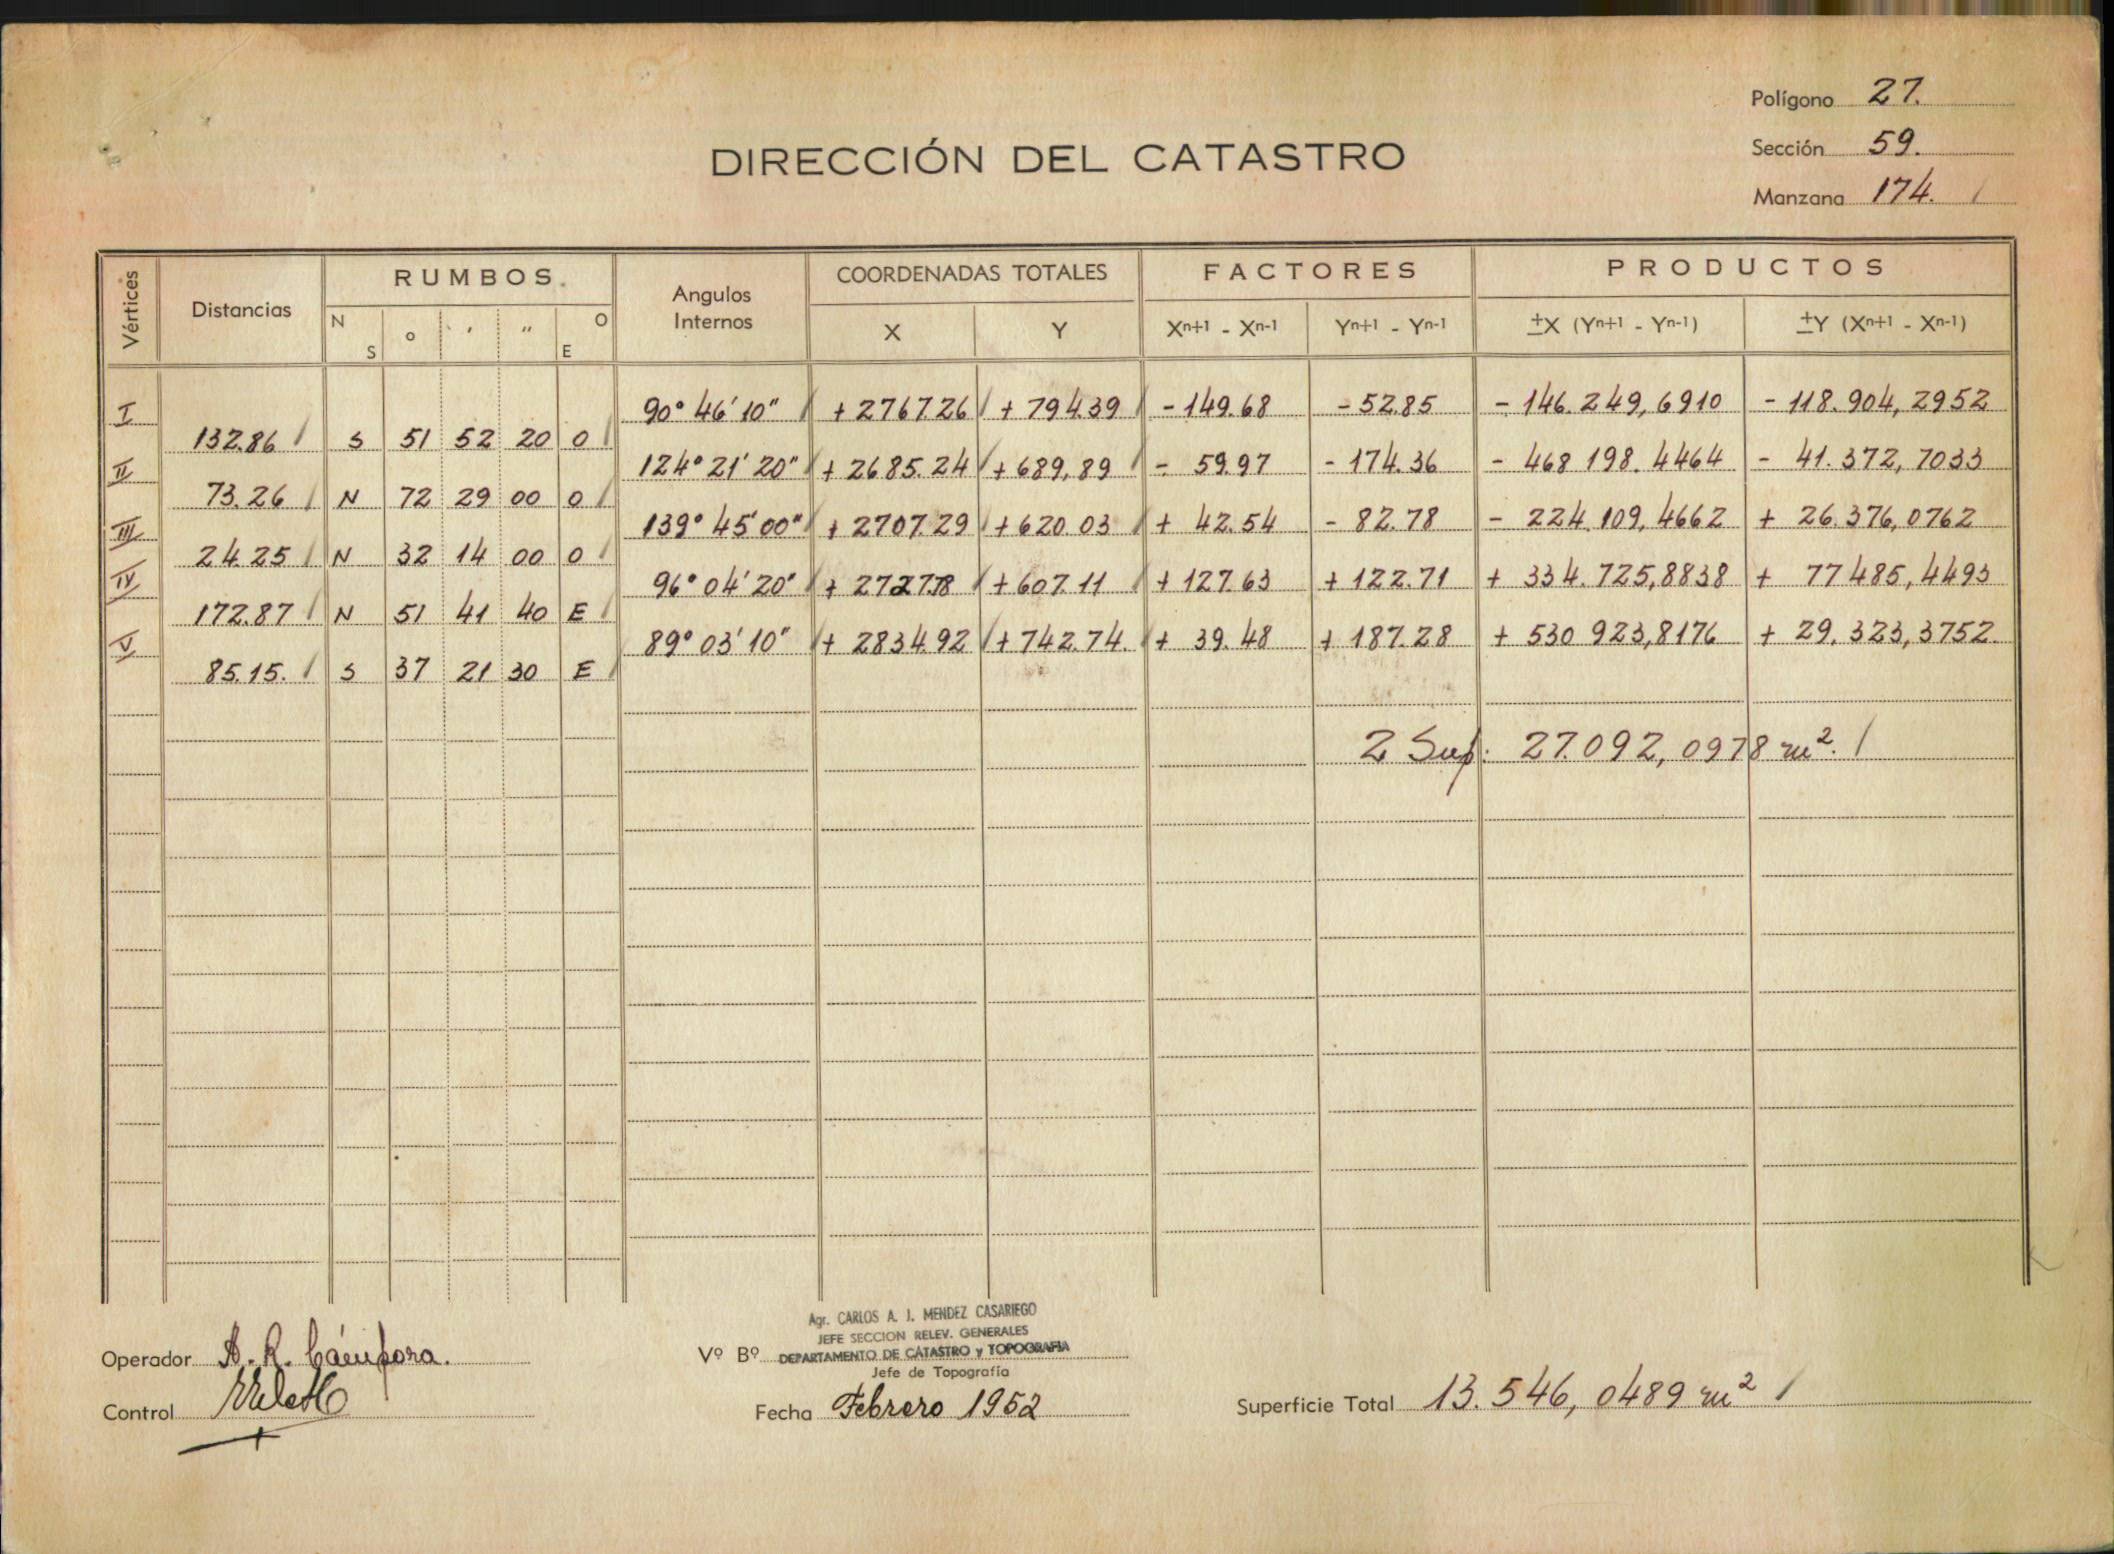 Polígono 27.
Sección 59.
Manzana 174.
DIRECCIÓN DEL CATASTRO
Vértices Distancias RUMBOS. Angulos Internos COORDENADAS TOTALES FACTORES PRODUCTOS
N S ° ' " O E X Y Xn+1 - Xn-1 Yn+1 - Yn-1 ±X (Yn+1 - Yn-1) ±Y (Xn+1 - Xn-1)
I 90° 46' 10" + 2767.26 + 794.39 - 149.68 - 52.85 - 146.249,6910 - 118.904,2952
132.86 S 51 52 20 O
II 124° 21' 20" + 2685.24 + 689,89 - 59.97 - 174.36 - 468 198.4464 - 41.372,7033
73.26 N 72 29 00 O
III 139° 45' 00" + 2707.29 + 620.03 + 42.54 - 82.78 - 224.109,4662 + 26.376,0762
24.25 N 32 14 00 O
IV 96° 04' 20" + 2727.78 + 607.11 + 127.63 + 122.71 + 334.725,8838 + 77485,4493
172.87 N 51 41 40 E
V 89° 03' 10" + 2834.92 + 742.74. + 39.48 + 187.28 + 530 923,8176 + 29.323,3752
85.15. S 37 21 30 E
2 Sup: 27.092,0978 m².
Agr. CARLOS A. J. MENDEZ CASARIEGO
JEFE SECCION RELEV. GENERALES
Operador A. R. Cámpora. Vº Bº DEPARTAMENTO DE CATASTRO y TOPOGRAFIA
Jefe de Topografía
Control Fecha Febrero 1952 Superficie Total 13.546,0489 m²